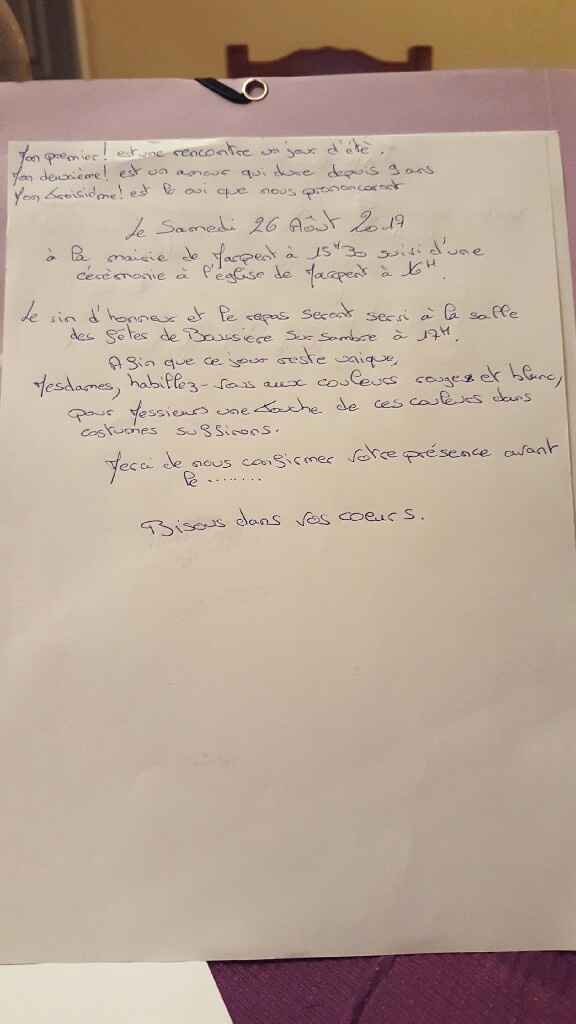 Mon premier! est une rencontre un jour d'été.
Mon deuxième! est un amour qui dure depuis 9 ans
Mon troisième! est le oui que nous prononceront
Le Samedi 26 Août 2017
à la mairie de Marpent à 15H30 suivi d'une
cérémonie à l'église de Marpent à 16H.
Le vin d'honneur et le repas seront servi à la salle
des fêtes de Boussière sur sambre à 17H.
Afin que ce jour reste unique,
Mesdames, habillez-vous aux couleurs rouges et blanc,
pour Messieurs une touche de ces couleurs dans
costumes suffirons.
Merci de nous confirmer votre présence avant
le ........
Bisous dans vos coeurs.